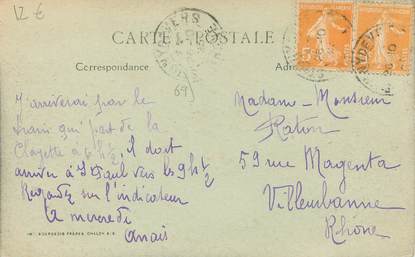 12 €
CARTE POSTALE
Correspondance
69
J'arriverai par le
train qui part de la
Clayette à 6h ½ il doit
arriver à St Paul vers les 9h ½
Regardez sur l'indicateur
A mercredi
Anais
Madame - Monsieur
Raton
59 rue Magenta
Villeurbanne
Rhône
BOURGEOIS FRÈRES, CHALON S.S.